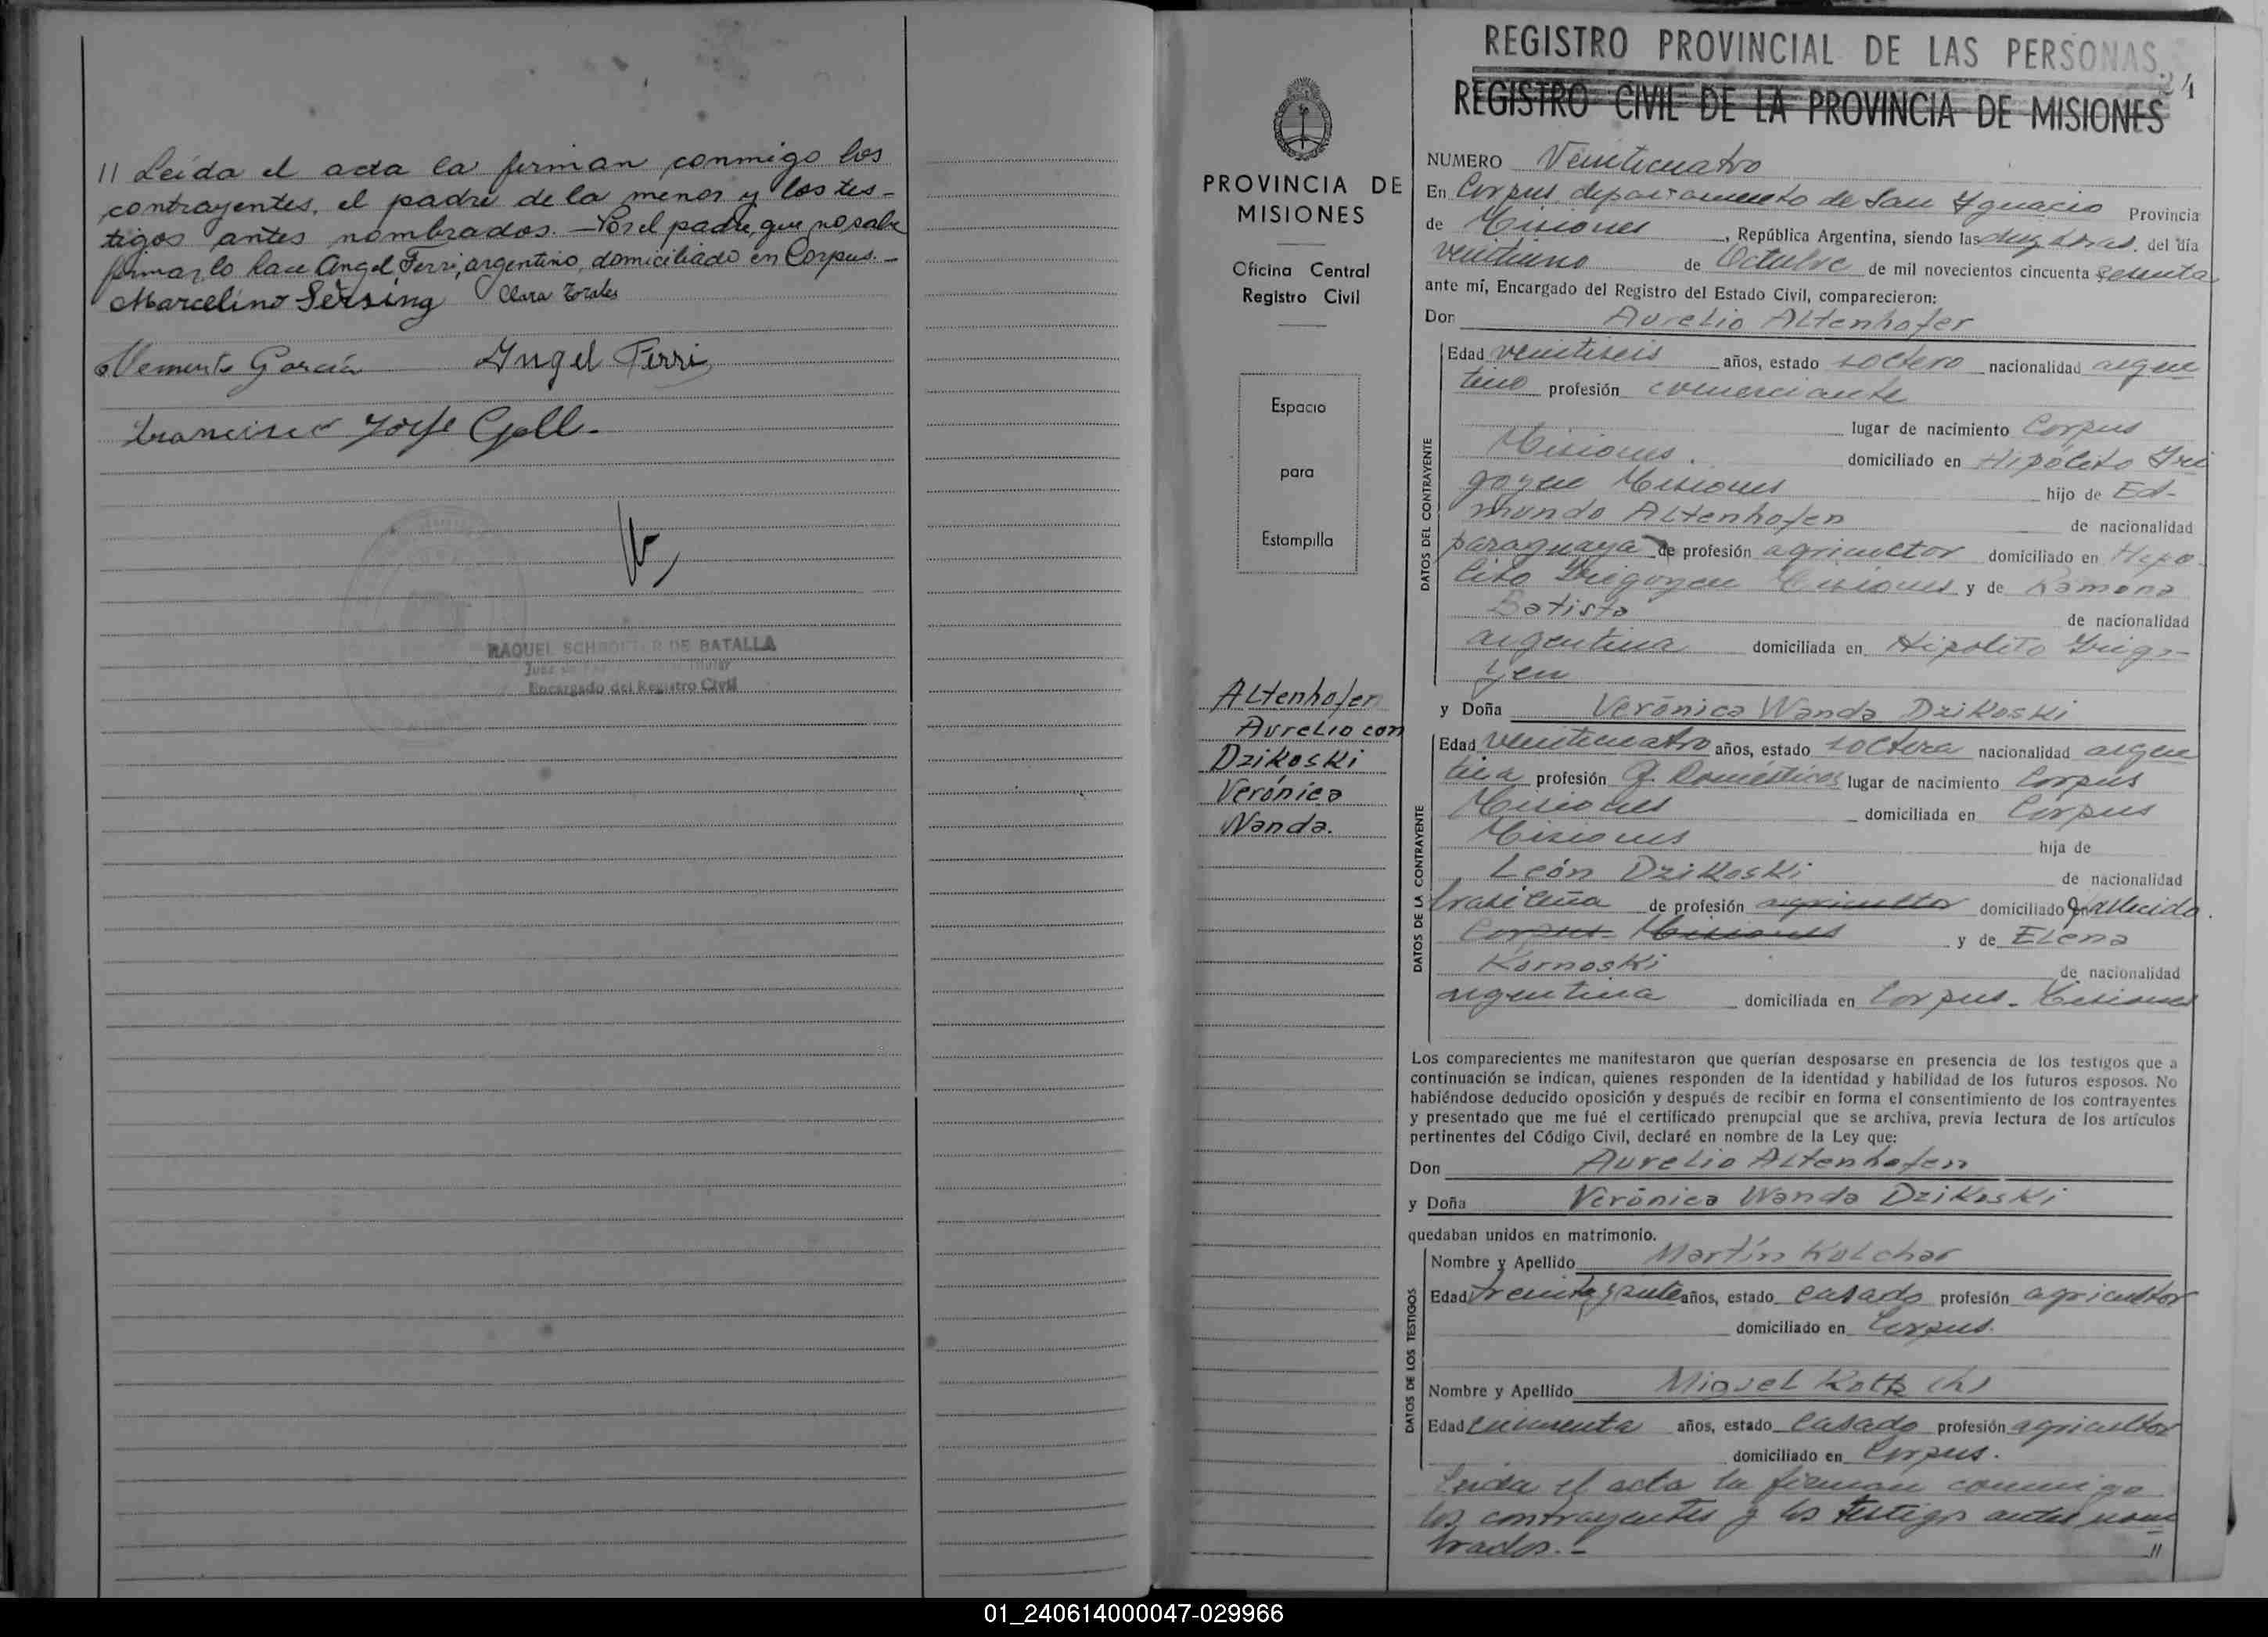 11 Leída el acta la firman conmigo los
contrayentes, el padre de la menor y los tes-
tigos antes nombrados. - Por el padre, que no sabe
firmar, lo hace Angel Ferri, argentino, domiciliado en Corpus. -
Marcelino Sersing Clara Torales
Clemente García Angel Ferri
Francisco Jorge Goll.
RAQUEL SCHROTTER DE BATALLA
Juez de Paz Titular
Encargado del Registro Civil
PROVINCIA DE
MISIONES
Oficina Central
Registro Civil
Espacio
para
Estampilla
Altenhofen
Aurelio con
Dzikoski
Verónica
Wanda.
REGISTRO PROVINCIAL DE LAS PERSONAS
24
REGISTRO CIVIL DE LA PROVINCIA DE MISIONES
NUMERO Veinticuatro
En Corpus departamento de San Ygnacio Provincia
de Misiones, República Argentina, siendo las diez horas del día
veintiuno de Octubre de mil novecientos cincuenta sesenta
ante mí, Encargado del Registro del Estado Civil, comparecieron:
Don Aurelio Altenhofer
DATOS DEL CONTRAYENTE
Edad veintiseis años, estado soltero nacionalidad argen
tino profesión comerciante
lugar de nacimiento Corpus
Misiones. domiciliado en Hipólito Yri
goyen Misiones hijo de Ed-
mundo Altenhofen de nacionalidad
paraguaya de profesión agricultor domiciliado en Hipo
lito Yrigoyen Misiones y de Ramona
Batista de nacionalidad
argentina domiciliada en Hipolito Yrigo-
yen
y Doña Verónica Wanda Dzikoski
DATOS DE LA CONTRAYENTE
Edad veinticuatro años, estado soltera nacionalidad argen
tina profesión Q. Domésticos lugar de nacimiento Corpus
Misiones domiciliada en Corpus
Misiones hija de
León Dzikoski de nacionalidad
brasileña de profesión agricultor domiciliado en fallecido.
Corpus Misiones y de Elena
Kornoski de nacionalidad
argentina domiciliada en Corpus - Misiones
Los comparecientes me manifestaron que querían desposarse en presencia de los testigos que a
continuación se indican, quienes responden de la identidad y habilidad de los futuros esposos. No
habiéndose deducido oposición y después de recibir en forma el consentimiento de los contrayentes
y presentado que me fué el certificado prenupcial que se archiva, previa lectura de los artículos
pertinentes del Código Civil, declaré en nombre de la Ley que:
Don Aurelio Altenhofen
y Doña Verónica Wanda Dzikoski
quedaban unidos en matrimonio.
DATOS DE LOS TESTIGOS
Nombre y Apellido Martín Kolchar
Edad treinta y siete años, estado casado profesión agricultor
domiciliado en Corpus.
Nombre y Apellido Miguel Rotta (h)
Edad cincuenta años, estado casado profesión agricultor
domiciliado en Corpus.
Leida el acta la firman conmigo
los contrayentes y los testigos antes nom
brados.- 11
01_240614000047-029966